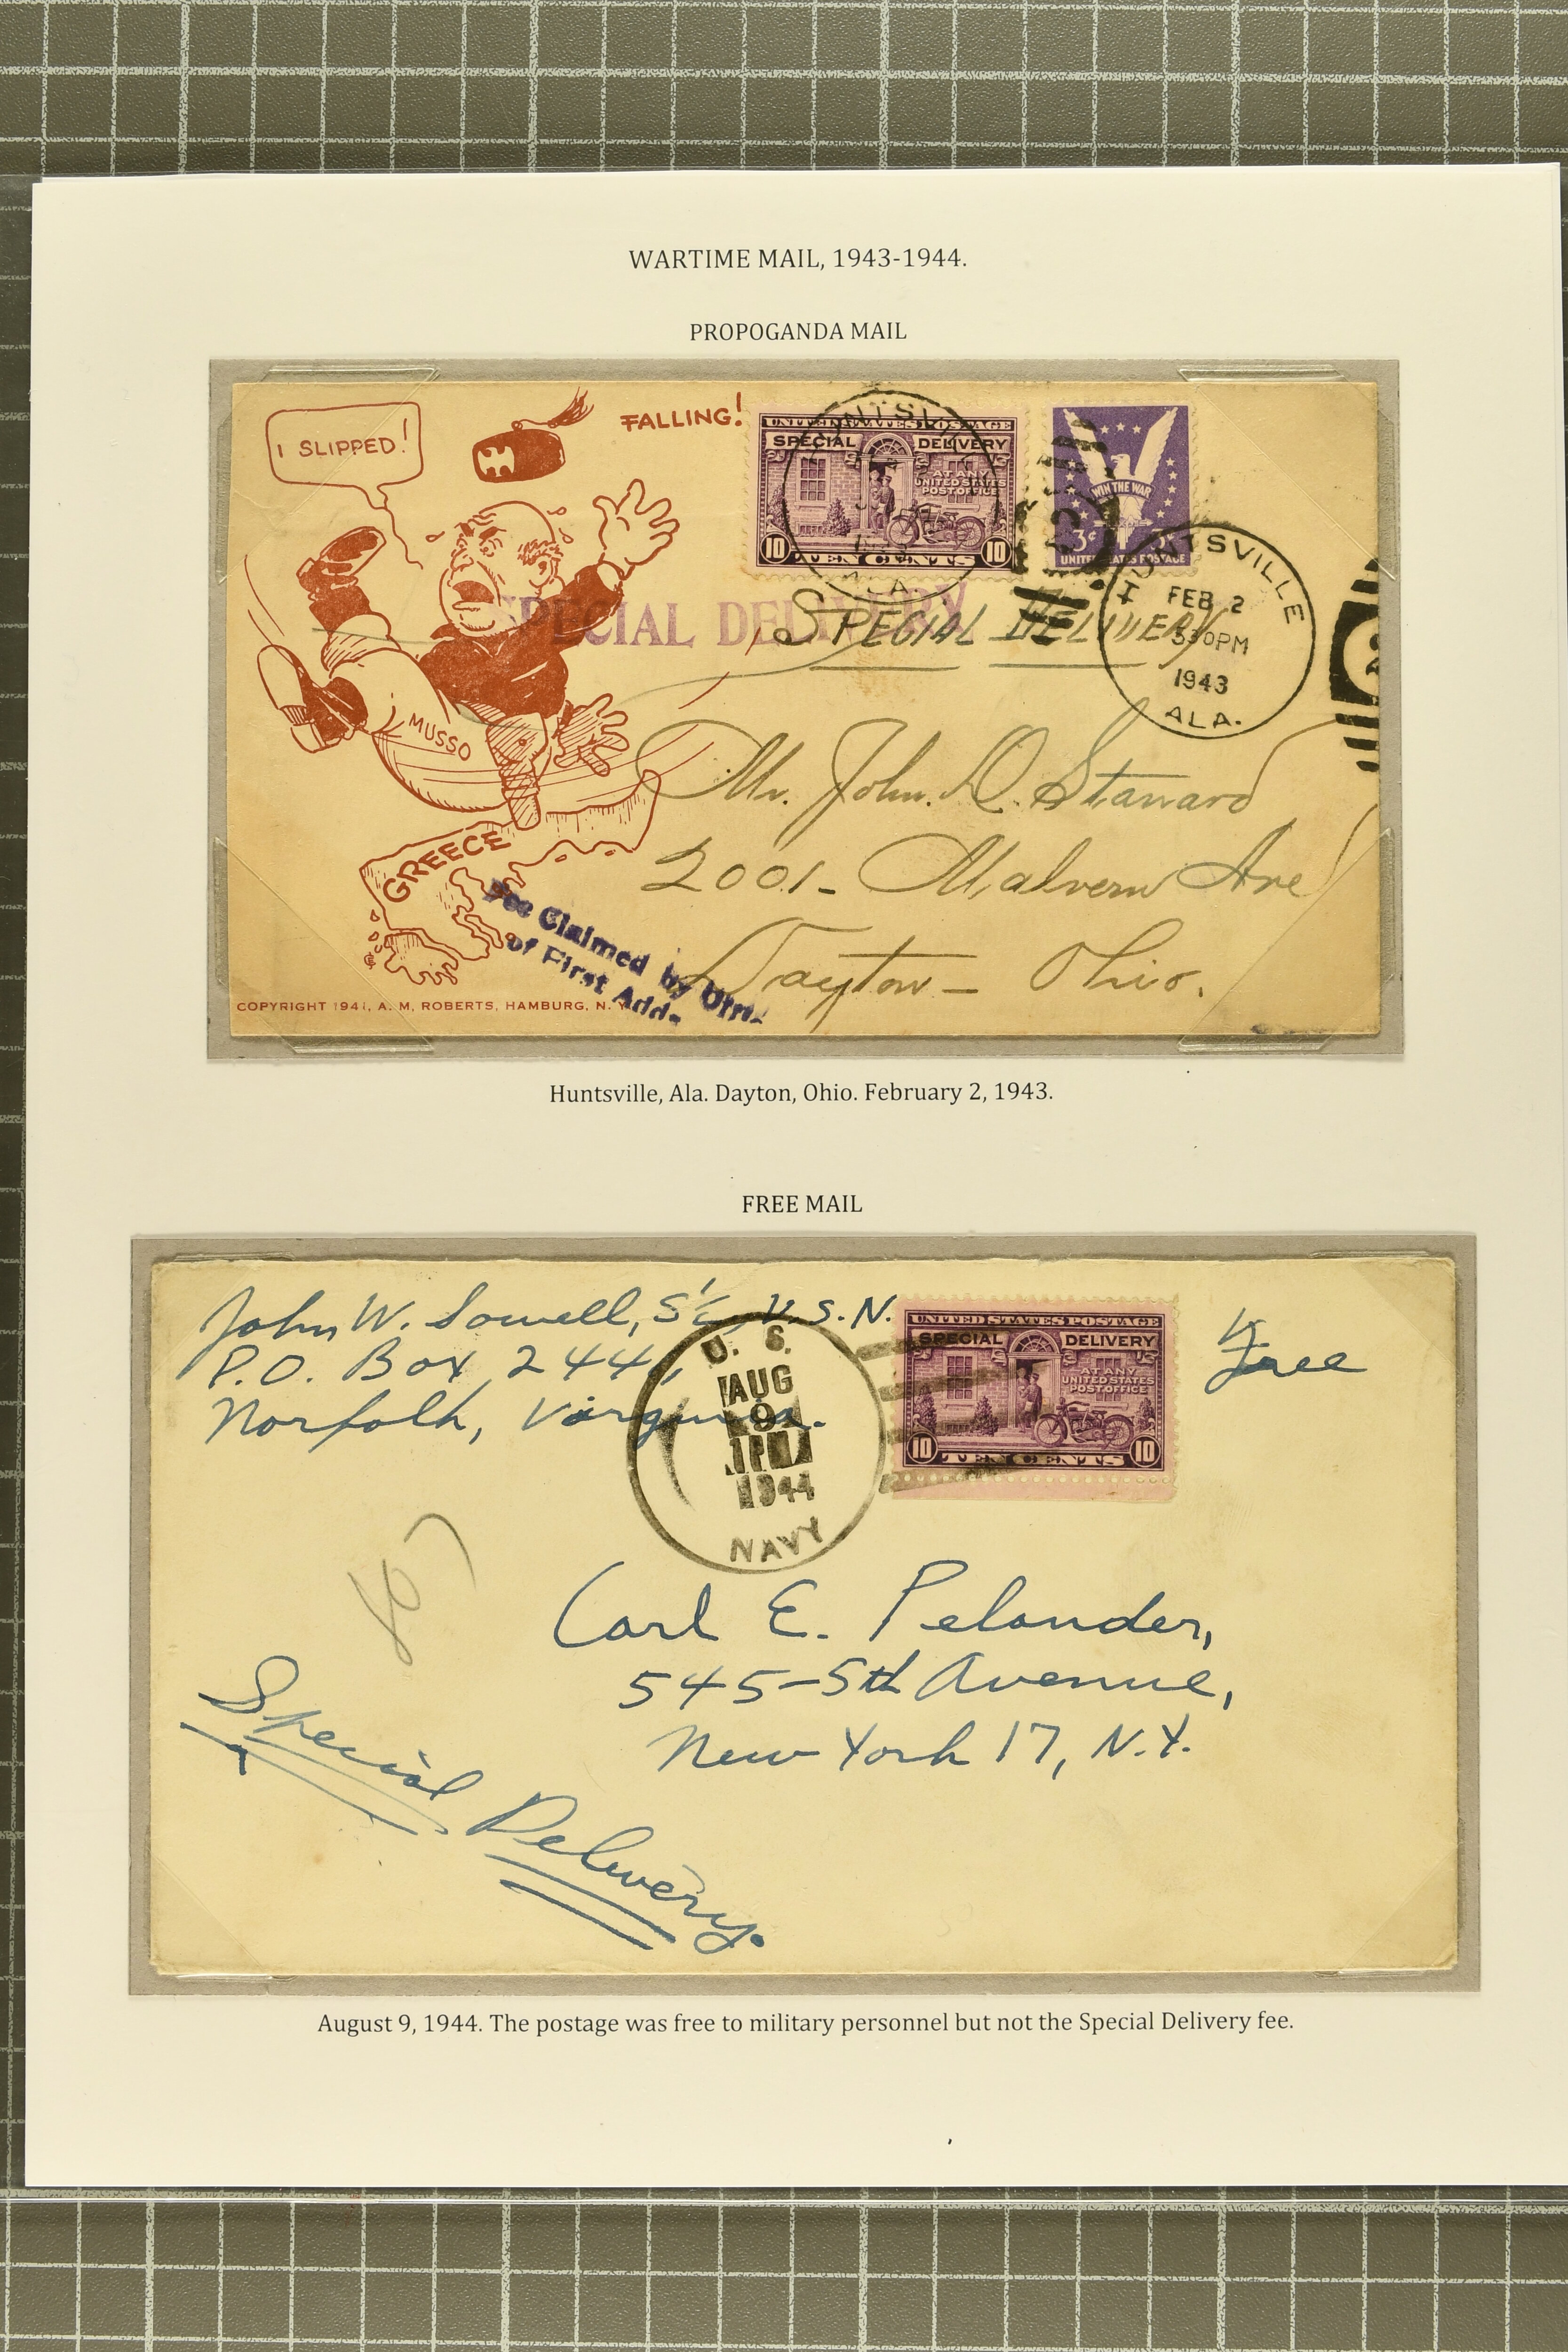 WARTIME MAIL, 1943-1944.
PROPOGANDA MAIL
I SLIPPED!
FALLING!
UNITED STATES POSTAGE
SPECIAL DELIVERY
AT ANY
UNITED STATES
POST OFFICE
10 TEN CENTS 10
WIN THE WAR
3¢
UNITED STATES POSTAGE
HUNTSVILLE
FEB 2
530PM
1943
ALA.
SPECIAL DELIVERY
SPECIAL DELIVERY
MUSSO
GREECE
Mr. John. D. Stanard
2001- Malvern Ave
Dayton - Ohio.
Fee Claimed by
of First Add
COPYRIGHT 1941, A. M. ROBERTS, HAMBURG, N. Y.
Huntsville, Ala. Dayton, Ohio. February 2, 1943.
FREE MAIL
John W. Sowell, S1/c, U.S.N.
P.O. Box 244,
Norfolk, Virginia.
U. S.
AUG
9
1PM
1944
NAVY
UNITED STATES POSTAGE
SPECIAL DELIVERY
AT ANY
UNITED STATES
POST OFFICE
10 TEN CENTS 10
Free
Carl E. Pelander,
545-5th Avenue,
New York 17, N.Y.
Special Delivery.
August 9, 1944. The postage was free to military personnel but not the Special Delivery fee.